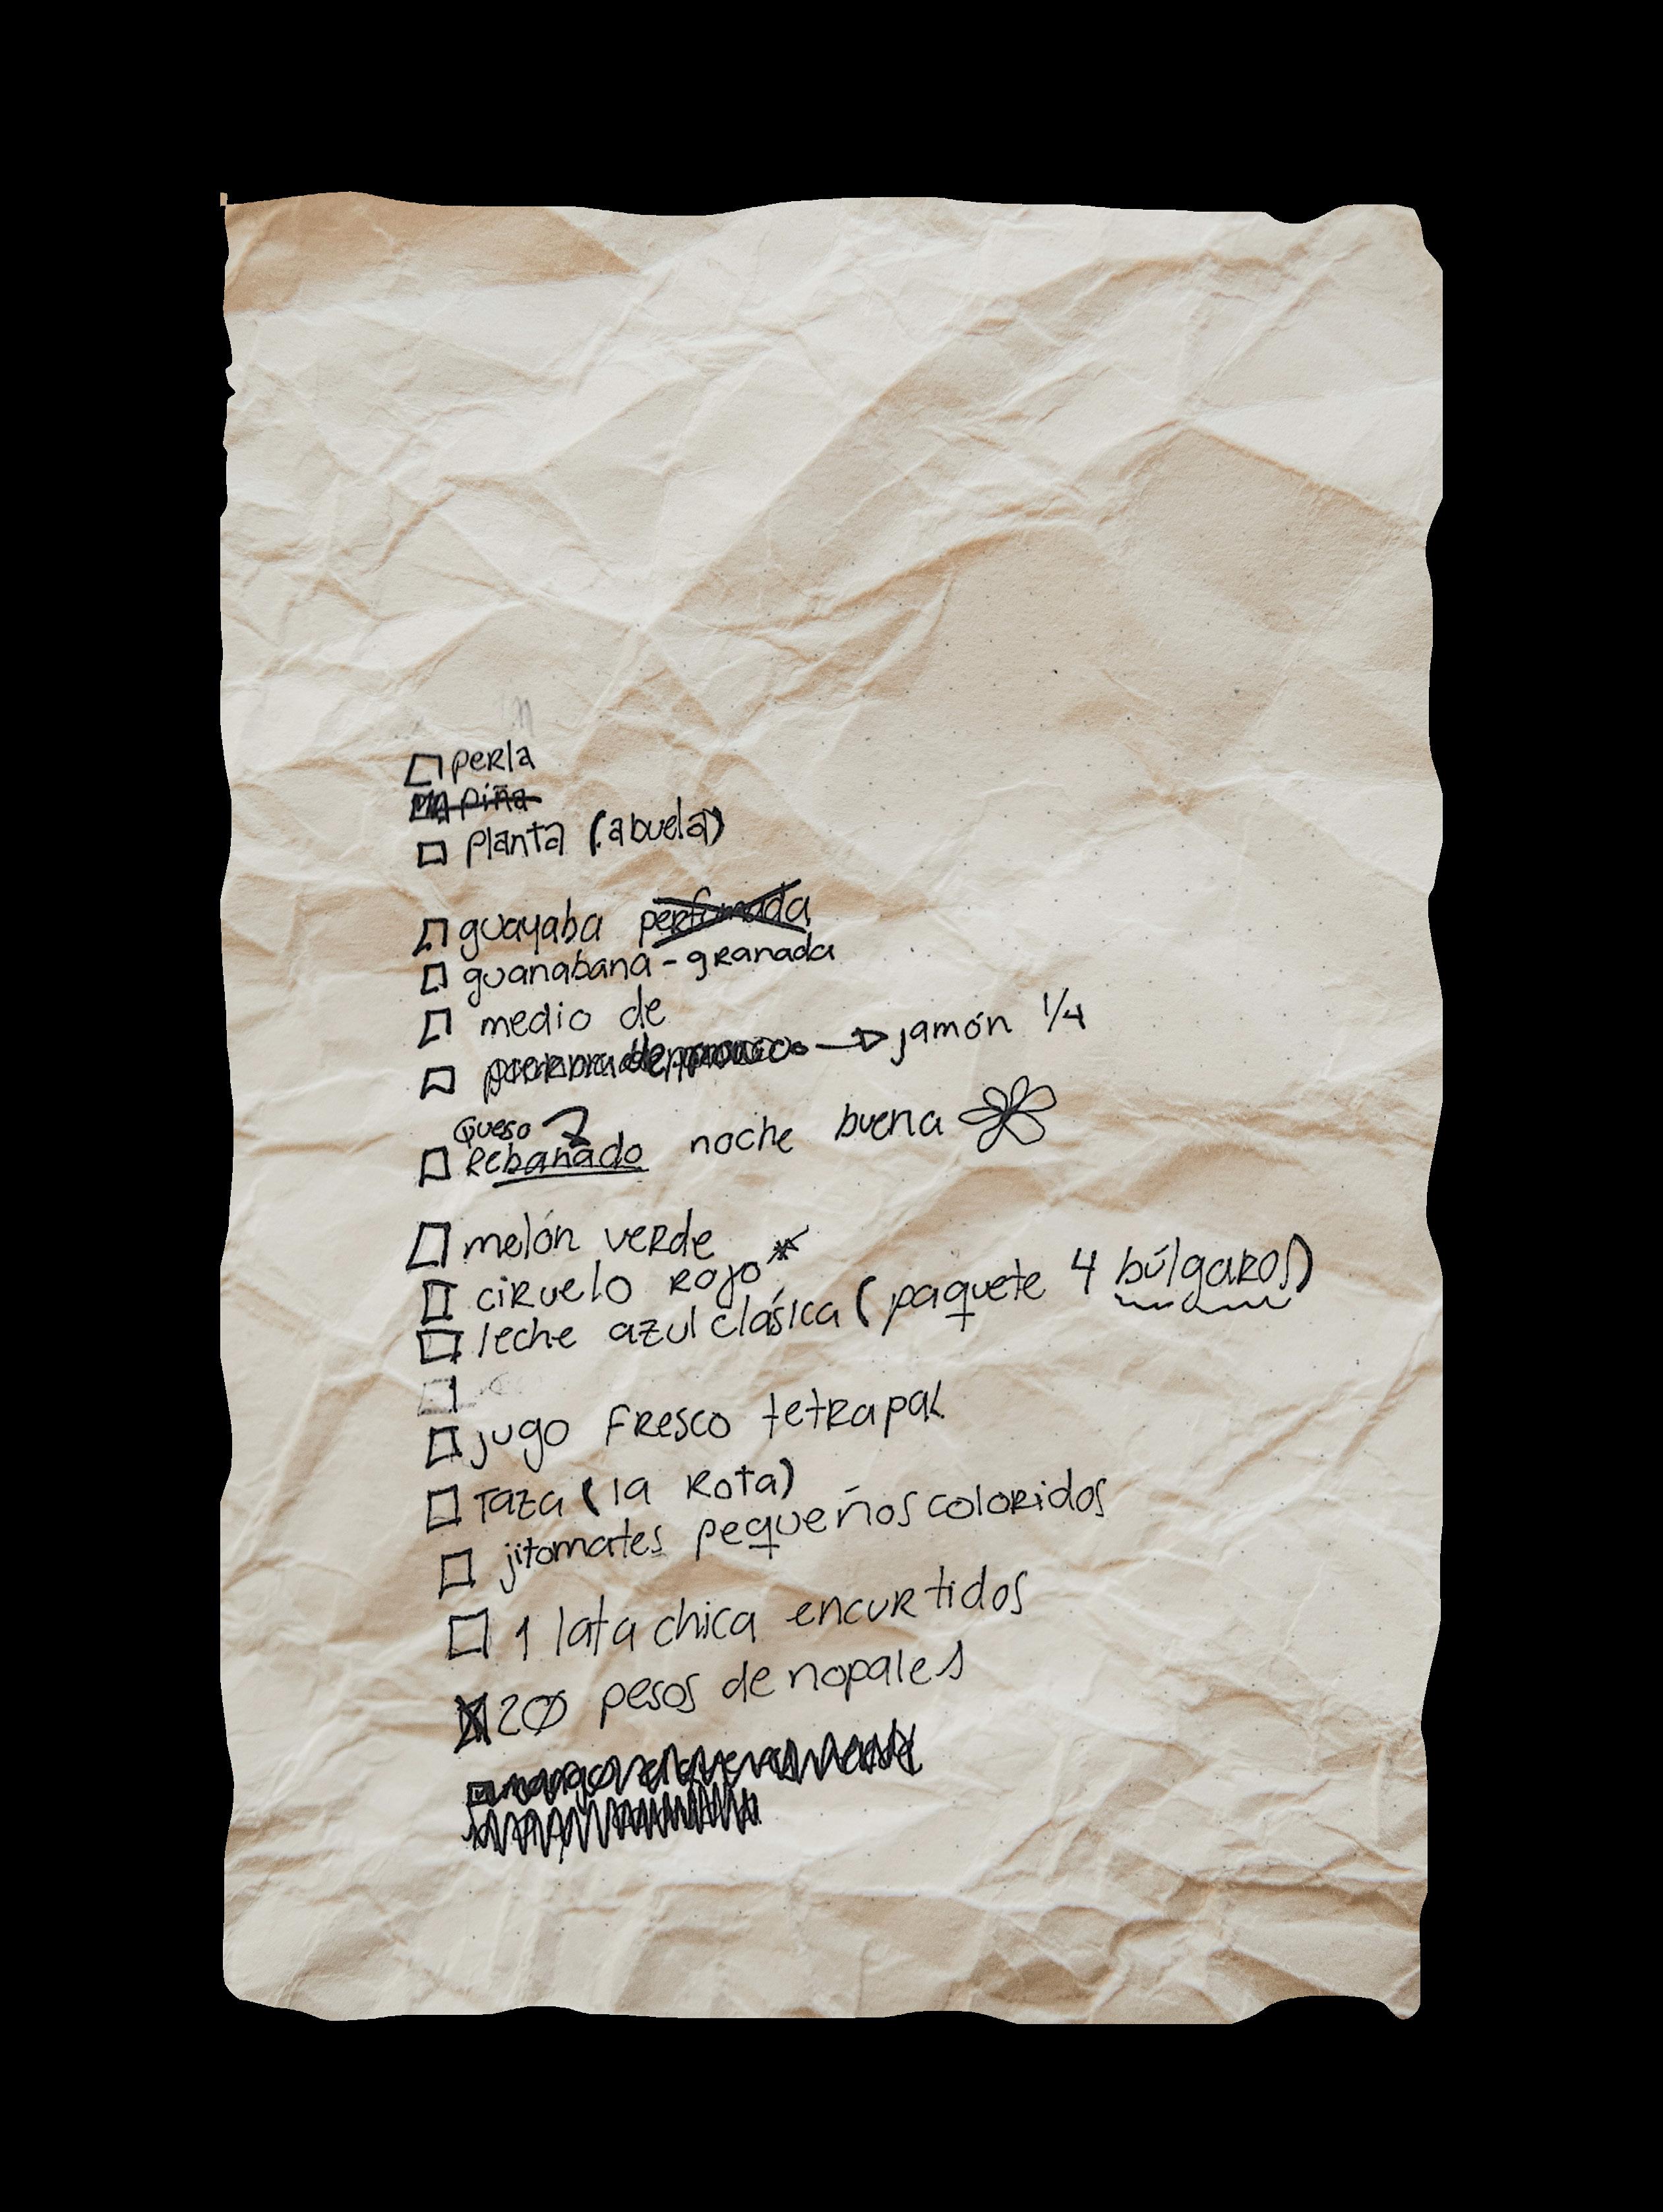 ☐ perla
piña
☐ planta (abuela)
☐ guayaba perfumada
☐ guanabana - granada
☐ medio de
☐ → jamón 1/4
Queso
☐ Rebanado noche buena
☐ melón verde
☐ ciruelo rojo *
☐ leche azul clásica (paquete 4 búlgaros)
☐ jugo fresco tetrapak
☐ Taza (la rota)
☐ jitomates pequeños coloridos
☐ 1 lata chica encurtidos
☒ 20 pesos de nopales